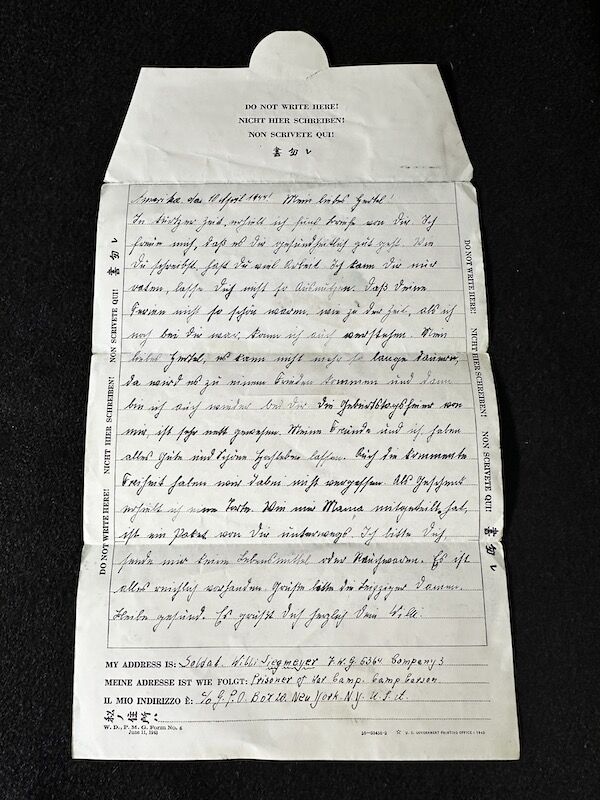 DO NOT WRITE HERE!
NICHT HIER SCHREIBEN!
NON SCRIVETE QUI!
書勿レ
Amerika, den 10 April 1944! Mein liebes Hertel!
In kurzer Zeit, erhielt ich fünf Briefe von Dir. Ich
freue mich, daß es Dir gesundheitlich gut geht. Wie
Du schreibst, hast Du viel Arbeit. Ich kann Dir nur
raten, lasse Dich nicht so Ausnützen. Daß Deine
Ferien nicht so schön waren, wie zu der Zeit, als ich
noch bei Dir war, kann ich auch verstehen. Mein
liebes Hertel, es kann nicht mehr so lange dauern,
da wird es zu einem Frieden kommen und dann
bin ich auch wieder bei Dir. Die Geburtstagsfeier von
mir, ist sehr nett gewesen. Meine Freunde und ich haben
alles Gute und Schöne hochleben lassen. Auch die kommende
Freiheit haben wir dabei nicht vergessen. Als Geschenk
erhielt ich eine Torte. Wie mir Mama mitgeteilt hat,
ist ein Paket von Dir unterwegs. Ich bitte Dich
sende mir keine Lebensmittel oder Rauchwaren. Es ist
alles reichlich vorhanden. Grüße bitte die Leipziger Damen.
Bleibe gesund. Es grüßt Dich herzlich Dein Willi.
DO NOT WRITE HERE! NICHT HIER SCHREIBEN! NON SCRIVETE QUI! 書勿レ
DO NOT WRITE HERE! NICHT HIER SCHREIBEN! NON SCRIVETE QUI! 書勿レ
MY ADDRESS IS: Soldat Willi Siegmeyer 7 W.G. 5364 Company 3
MEINE ADRESSE IST WIE FOLGT: Prisoner of War Camp. Camp Carson.
IL MIO INDIRIZZO È: c/o G.P.O. Box 20. New York. N.Y. U.S.A.
私ノ住所ハ
W. D., P. M. G. Form No. 4
June 11, 1943
U. S. GOVERNMENT PRINTING OFFICE : 1943